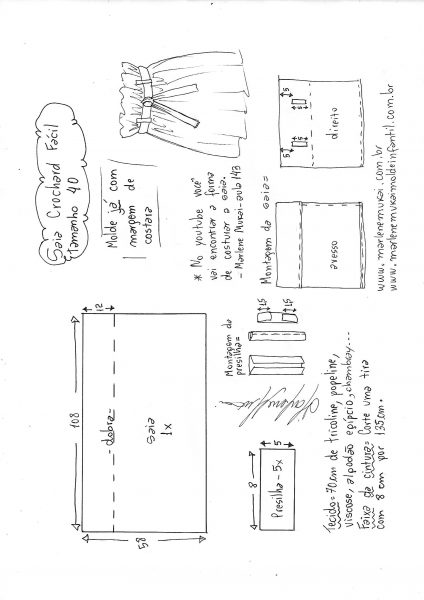 Saia Crochard Fácil
Tamanho 40
Molde já com
margem de
costura
* No youtube você
vai encontrar a forma
de costurar a saia.
- Marlene Mukai - aula 143
Montagem da saia=
avesso
direito
5
5
5
5
www.marlenemukai.com.br
www.marlenemukaimoldeinfantil.com.br
12
108
- dobra -
saia
1x
58
Montagem da
presilha=
1,5
1,5
8
5
Presilha - 5x
Tecido= 70cm de tricoline, popeline,
viscose, algodão egípcio, chambray...
Faixa da cintura= Corte uma tira
com 8 cm por 135cm.